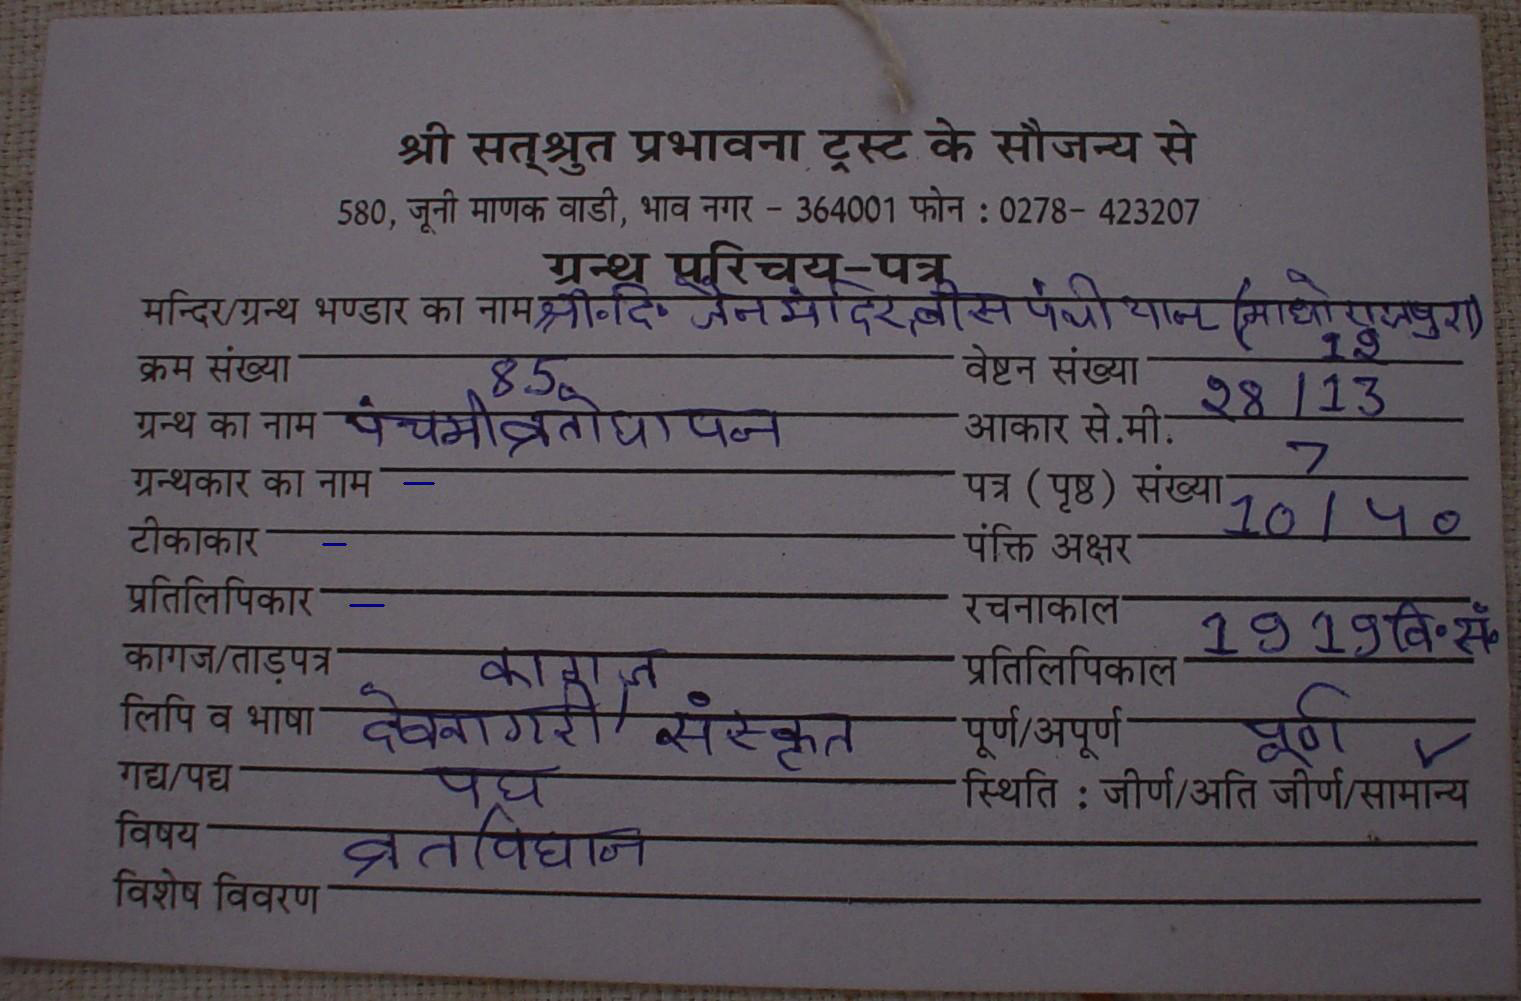 श्री सत्श्रुत प्रभावना ट्रस्ट के सौजन्य से
580, जूनी माणक वाडी, भाव नगर - 364001 फोन : 0278- 423207
ग्रन्थ परिचय-पत्र
मन्दिर/ग्रन्थ भण्डार का नाम श्री॰दि॰ जैन मंदिर, बीस पंथी यान (माधोराजपुरा)
क्रम संख्या 85 वेष्टन संख्या 12
ग्रन्थ का नाम पंचमीव्रतोद्यापन आकार से.मी. 28/13
ग्रन्थकार का नाम — पत्र (पृष्ठ) संख्या 7
टीकाकार — पंक्ति अक्षर 10/40
प्रतिलिपिकार — रचनाकाल
कागज/ताड़पत्र कागज प्रतिलिपिकाल 1919 वि॰सं॰
लिपि व भाषा देवनागरी/संस्कृत पूर्ण/अपूर्ण पूर्ण ✓
गद्य/पद्य पद्य स्थिति : जीर्ण/अति जीर्ण/सामान्य
विषय व्रतविधान
विशेष विवरण